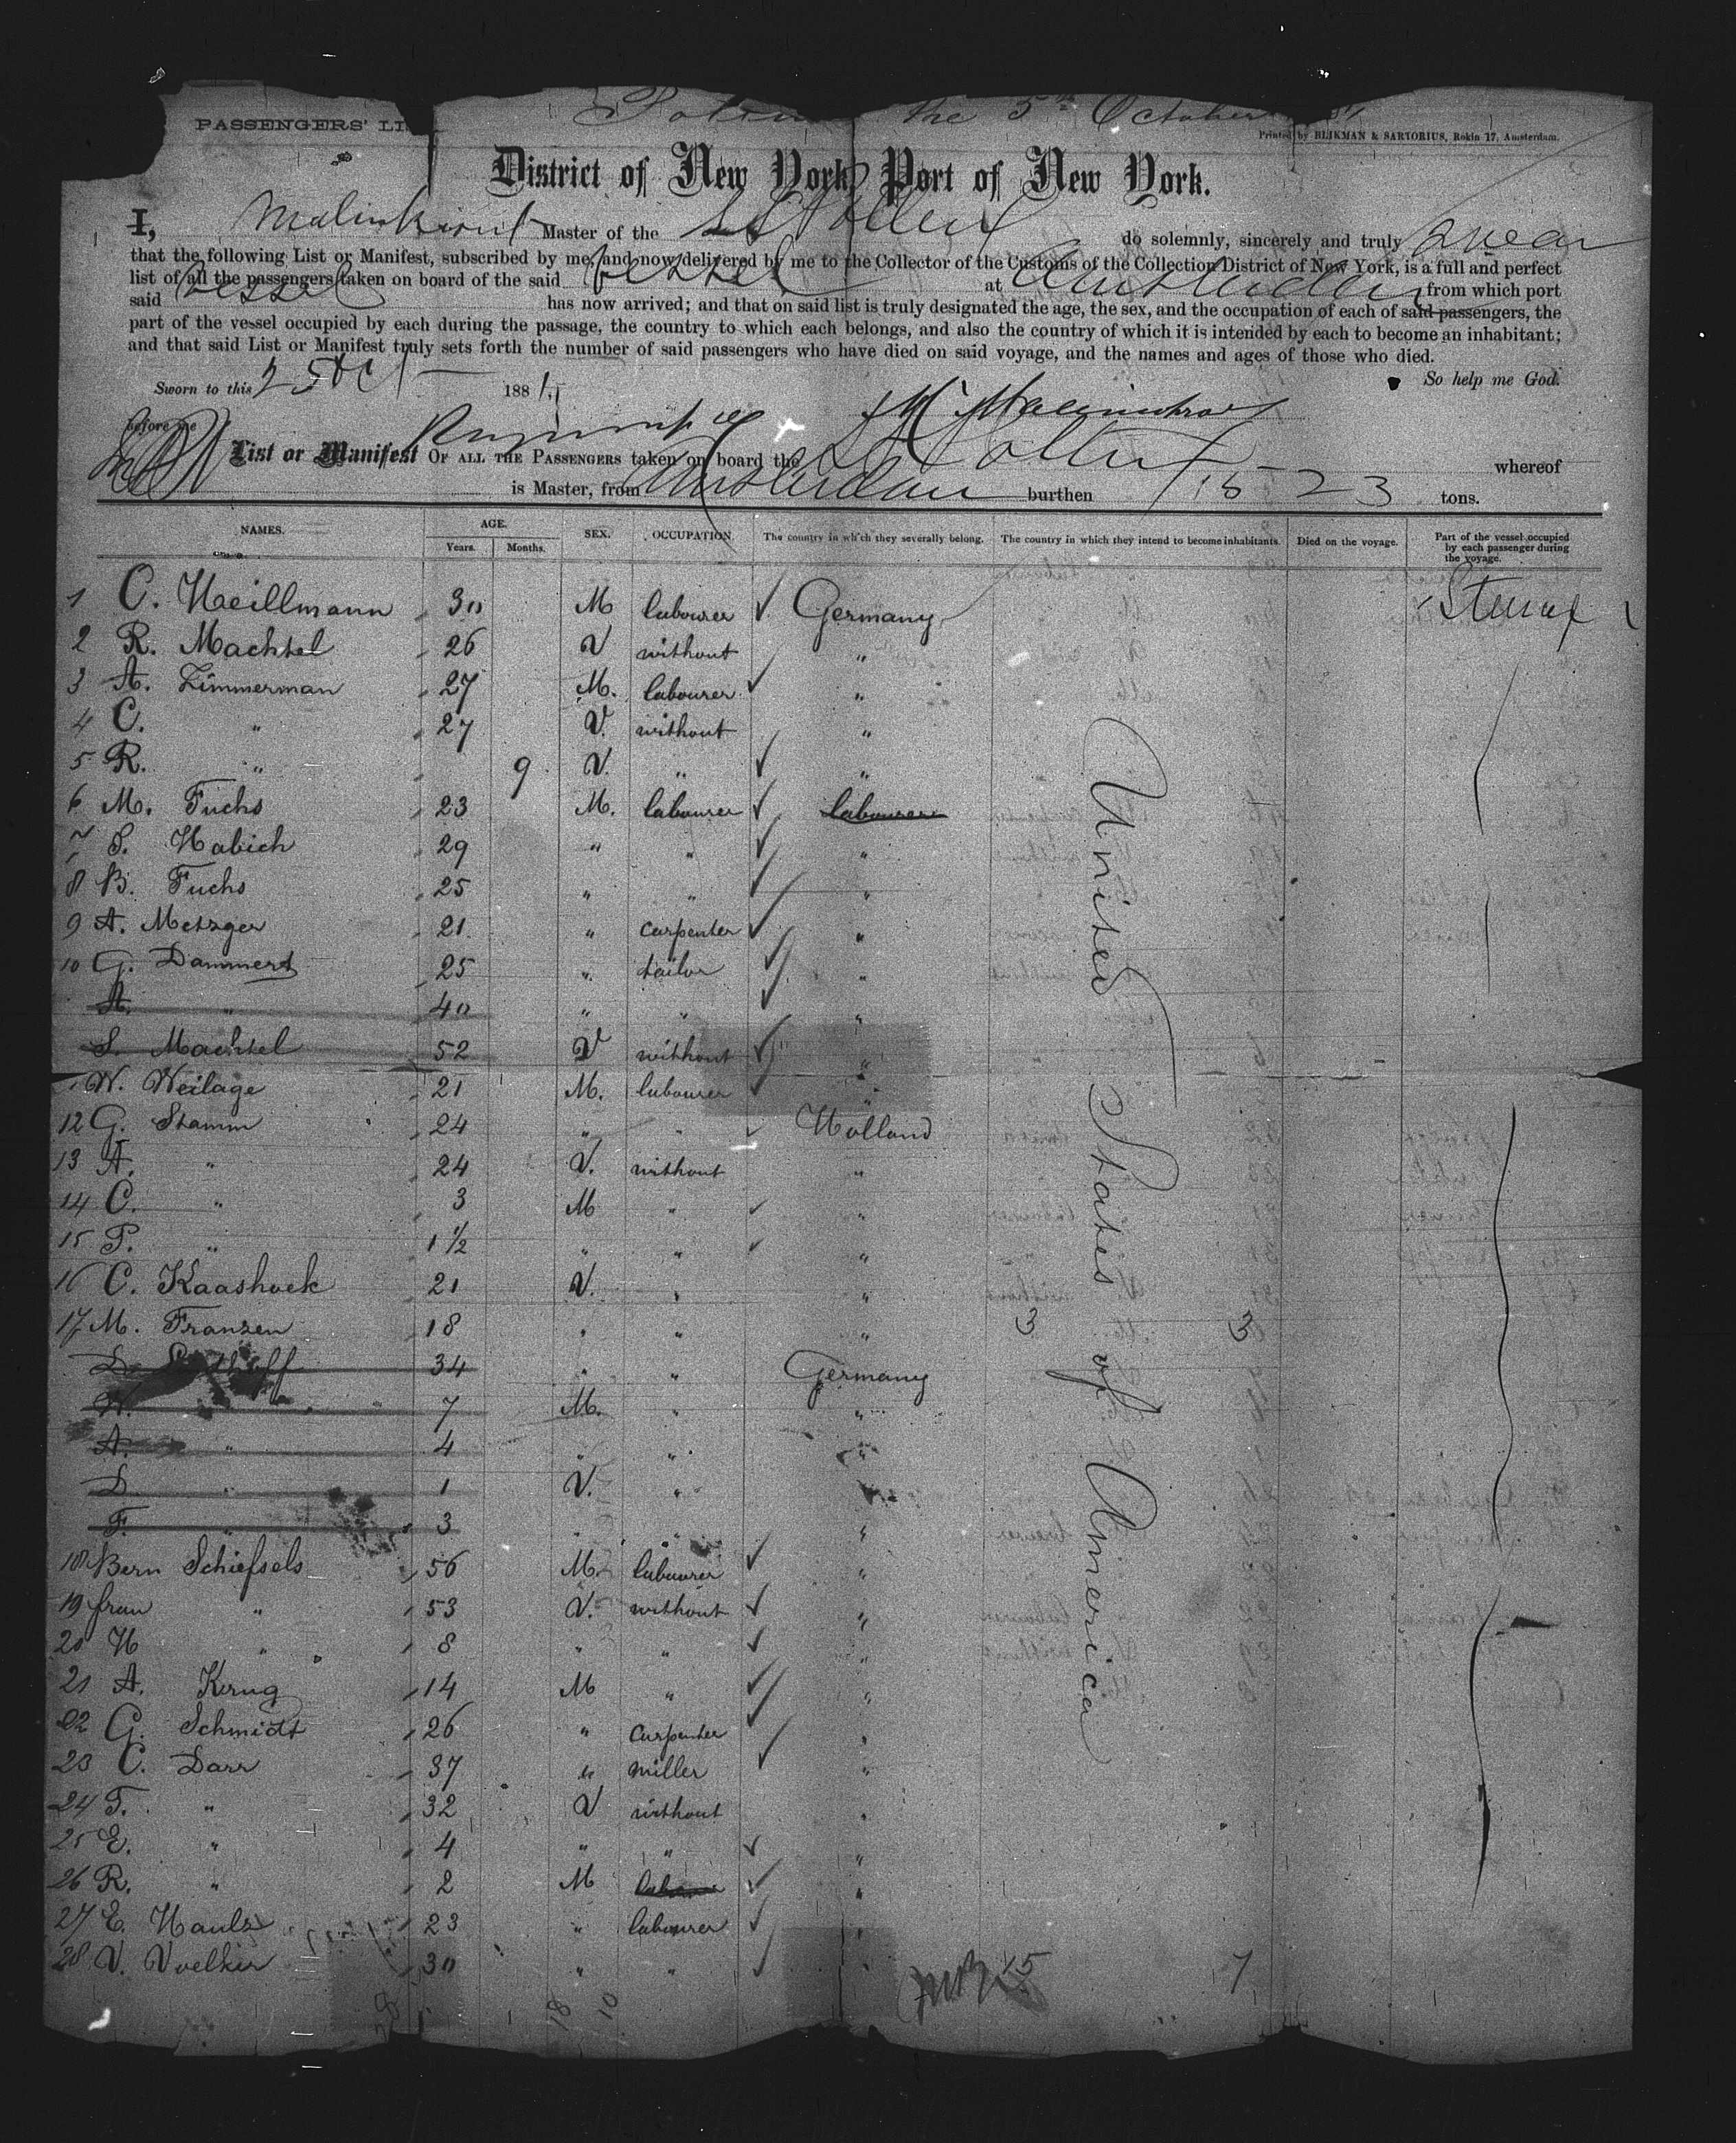 the 5th October
PASSENGERS' LI
Printed by BLIKMAN & SARTORIUS, Rokin 17, Amsterdam.
District of New York, Port of New York.
I, Master of the SS do solemnly, sincerely and truly swear
that the following List or Manifest, subscribed by me, and now delivered by me to the Collector of the Customs of the Collection District of New York, is a full and perfect
list of all the passengers taken on board of the said vessel at Amsterdam from which port
said vessel has now arrived; and that on said list is truly designated the age, the sex, and the occupation of each of said passengers, the
part of the vessel occupied by each during the passage, the country to which each belongs, and also the country of which it is intended by each to become an inhabitant;
and that said List or Manifest truly sets forth the number of said passengers who have died on said voyage, and the names and ages of those who died.
So help me God.
Sworn to this 188
before me
List or Manifest OF ALL THE PASSENGERS taken on board the whereof
is Master, from Amsterdam burthen 1523 tons.
NAMES. AGE. SEX. OCCUPATION. The country in which they severally belong. The country in which they intend to become inhabitants. Died on the voyage. Part of the vessel occupied by each passenger during the voyage.
Years. Months.
1 C. Heillmann 30 M labourer Germany
2 R. Machtel 26 V without "
3 A. Zimmerman 27 M. labourer "
4 C. " 27 V. without "
5 R. " 9 V. " "
6 M. Fuchs 23 M. labourer labourer
7 S. Habich 29 " " "
8 B. Fuchs 25 " " "
9 A. Metzger 21 " carpenter "
10 G. Dammert 25 " tailor "
A. " 40 " " "
S. Machtel 52 V without "
W. Weilage 21 M. labourer "
12 G. Stamm 24 " " Holland
13 A. " 24 V. without "
14 C. " 3 M " "
15 P. " 1 1/2 " " "
16 C. Kaashoek 21 V. " "
17 M. Franzen 18 " " " 3 3
D. 34 " " Germany
W. 7 M. " "
A. " 4 " " "
D. " 1 V. " "
F. " 3 " " "
18 Bern Schiefsels 56 M. labourer "
19 frau " 53 V. without "
20 H " 8 " " "
21 A. Krug 14 M " "
22 G. Schmidt 26 " carpenter "
23 C. Darr 37 " miller "
24 T. " 32 V without "
25 E. " 4 " " "
26 R. " 2 M "
27 E. Haulz 23 " labourer "
28 V. Voelker 30 " " " 15 7
United States of America
18 10